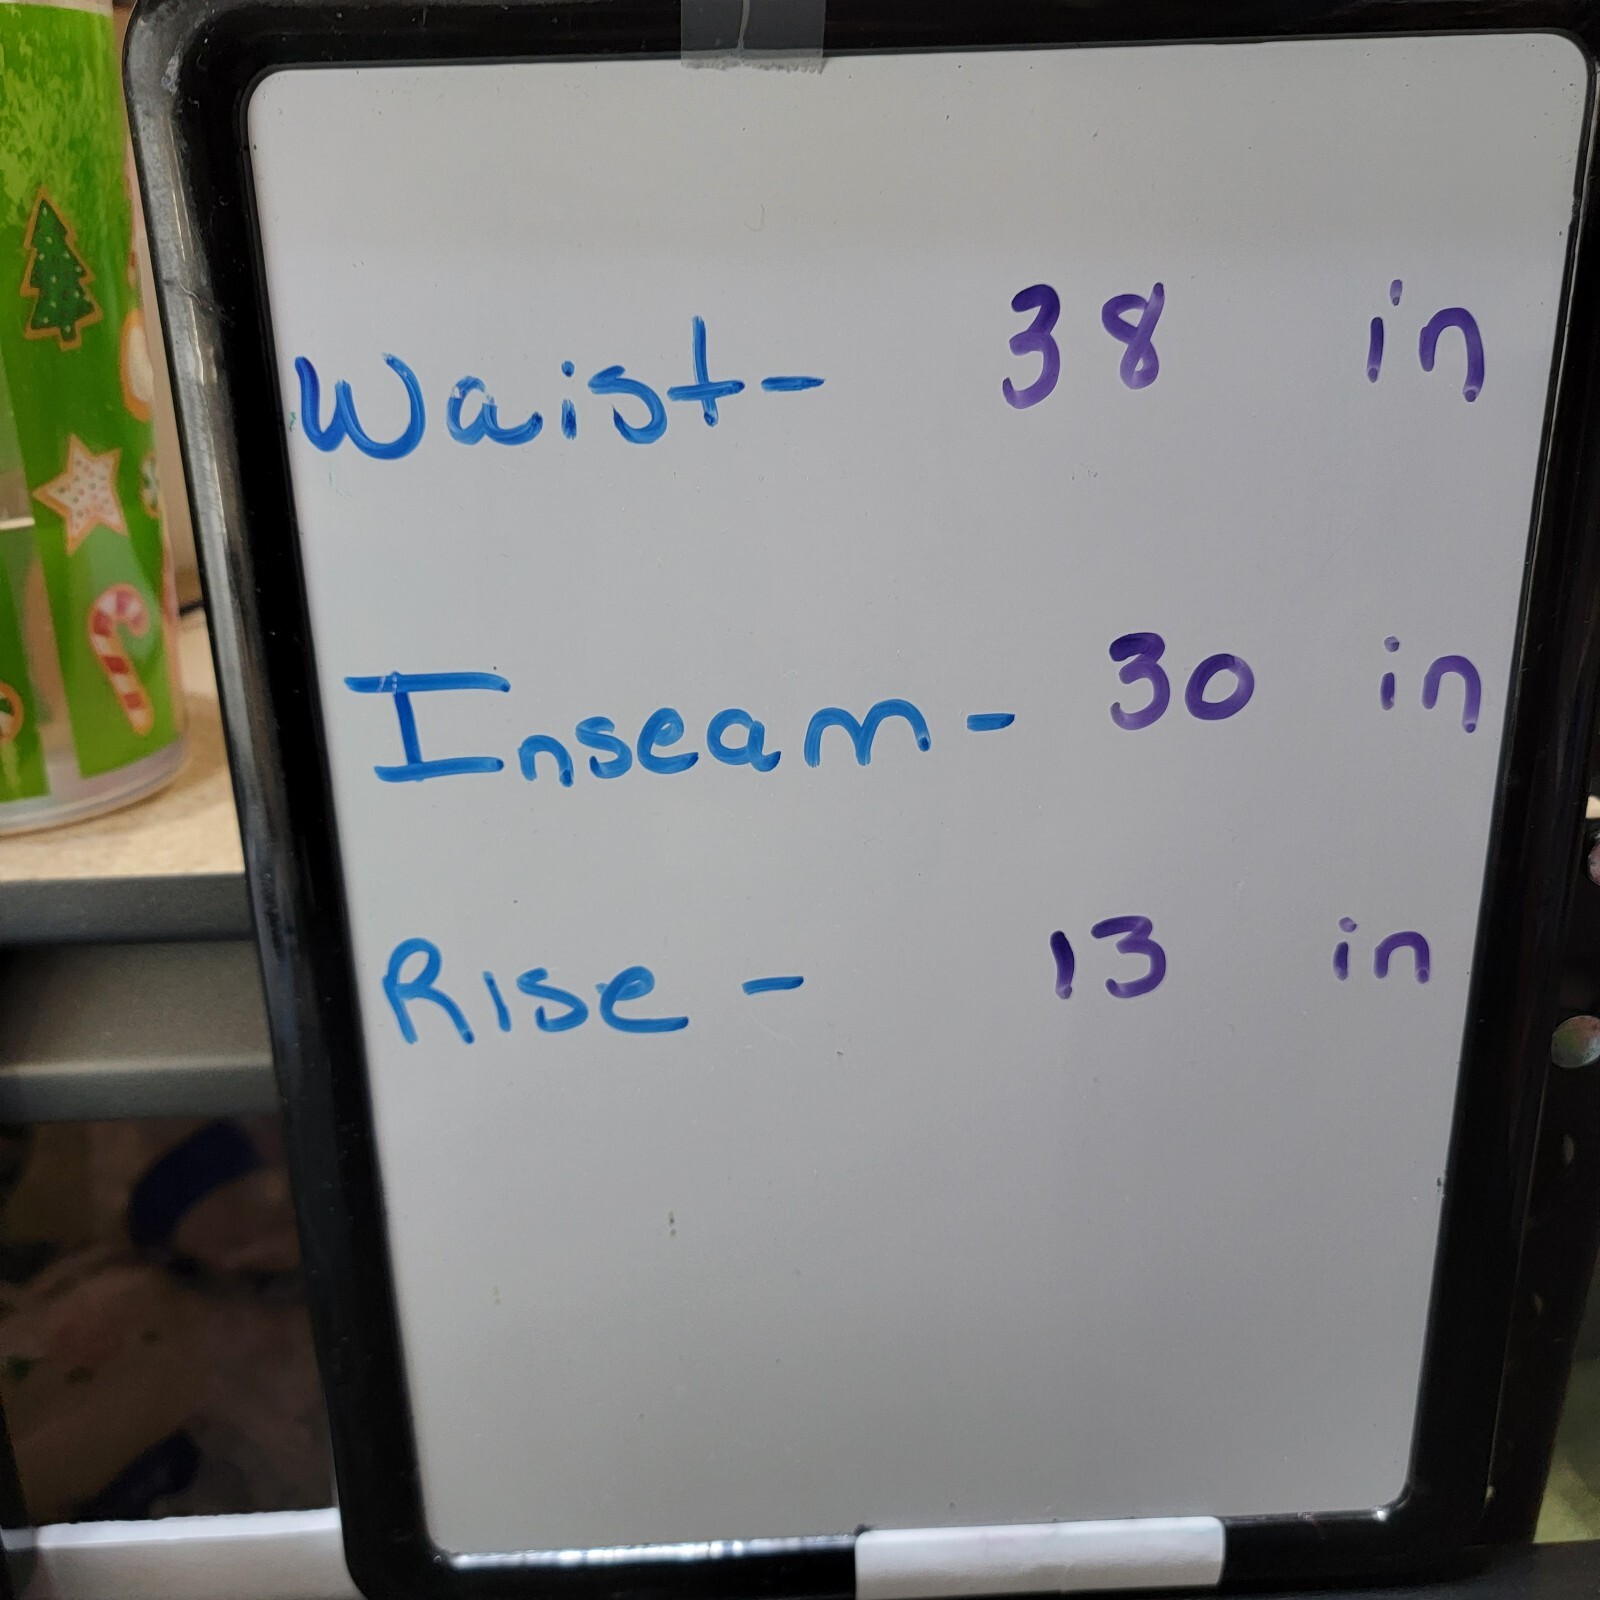 Waist- 38 in
Inseam- 30 in
Rise - 13 in